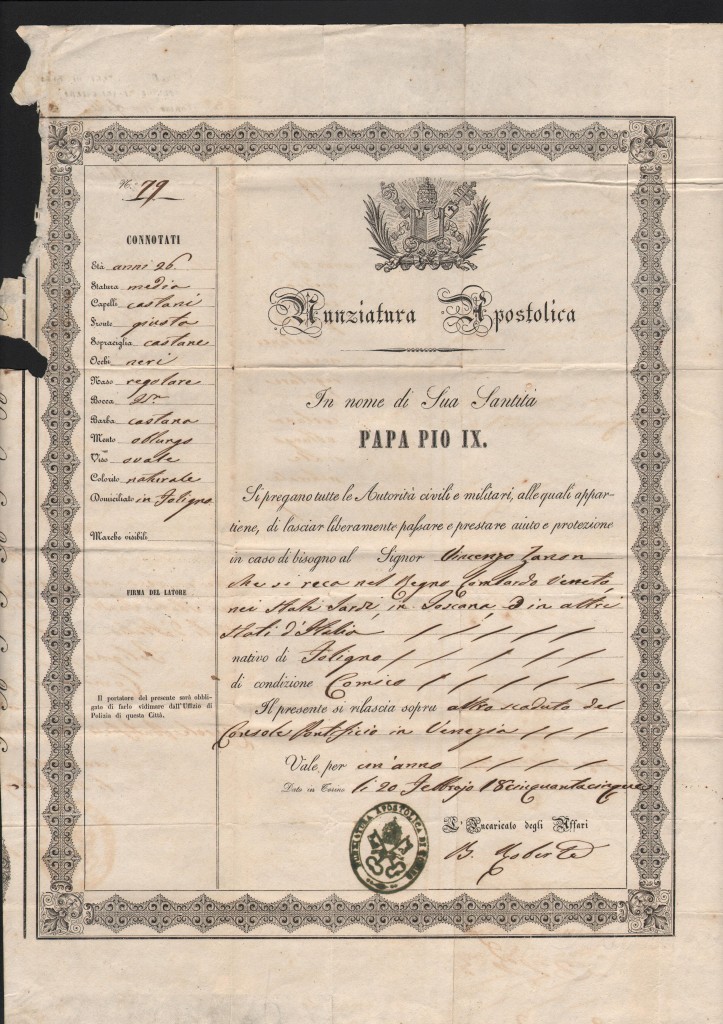 N.° 79
CONNOTATI
Età anni 26
Statura media
Capelli castani
Fronte giusta
Sopraciglia castane
Occhi neri
Naso regolare
Bocca
Barba castana
Mento oblungo
Viso ovale
Colorito naturale
Domiciliato in Foligno
Marche visibili
FIRMA DEL LATORE
Il portatore del presente sarà obbli-
gato di farlo vidimare dall'Uffizio di
Polizia di questa Città.
Nunziatura Apostolica
In nome di Sua Santità
PAPA PIO IX.
Si pregano tutte le Autorità civili e militari, alle quali appar-
tiene, di lasciar liberamente passare e prestare aiuto e protezione
in caso di bisogno al Signor Vincenzo Zanon
che si reca nel Regno Lombardo Veneto,
nei Stati Sardi, in Toscana, ed in altri
Stati d'Italia
nativo di Foligno
di condizione Comico
Il presente si rilascia sopra altro scaduto del
Console Pontificio in Venezia
Vale per un'anno
Dato in Torino li 20 Febbrajo 18cinquantacinque
L'Incaricato degli Affari
B. Roberti
NUNZIATURA APOSTOLICA DI TORINO